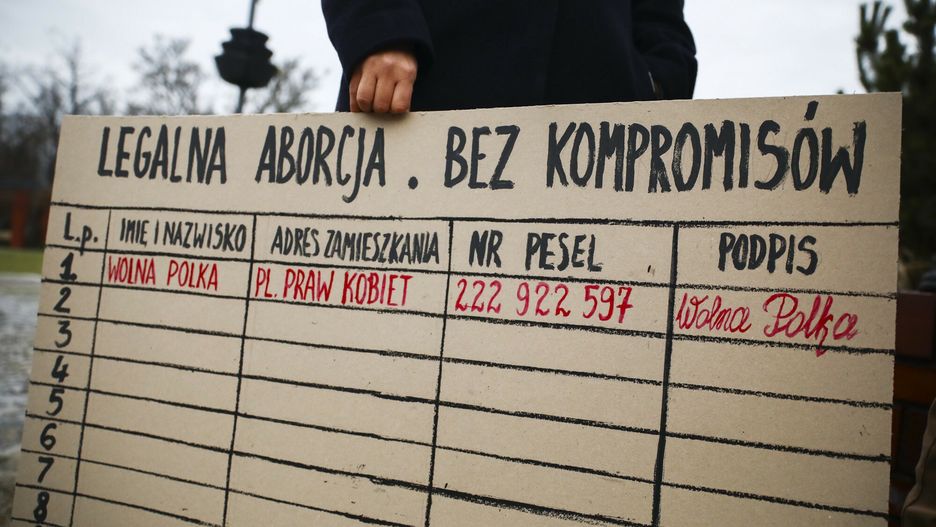 LEGALNA ABORCJA. BEZ KOMPROMISÓW
L.p. IMIĘ I NAZWISKO ADRES ZAMIESZKANIA NR PESEL PODPIS
1. WOLNA POLKA PL. PRAW KOBIET 222 922 597 Wolna Polka
2
3
4
5
6
7
8